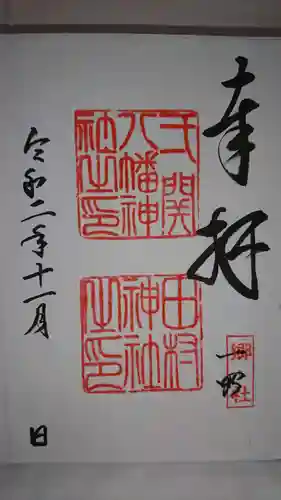 奉拝
郷社
干開
八幡神
社之印
田村
神社
之印
令和二年十一月 日